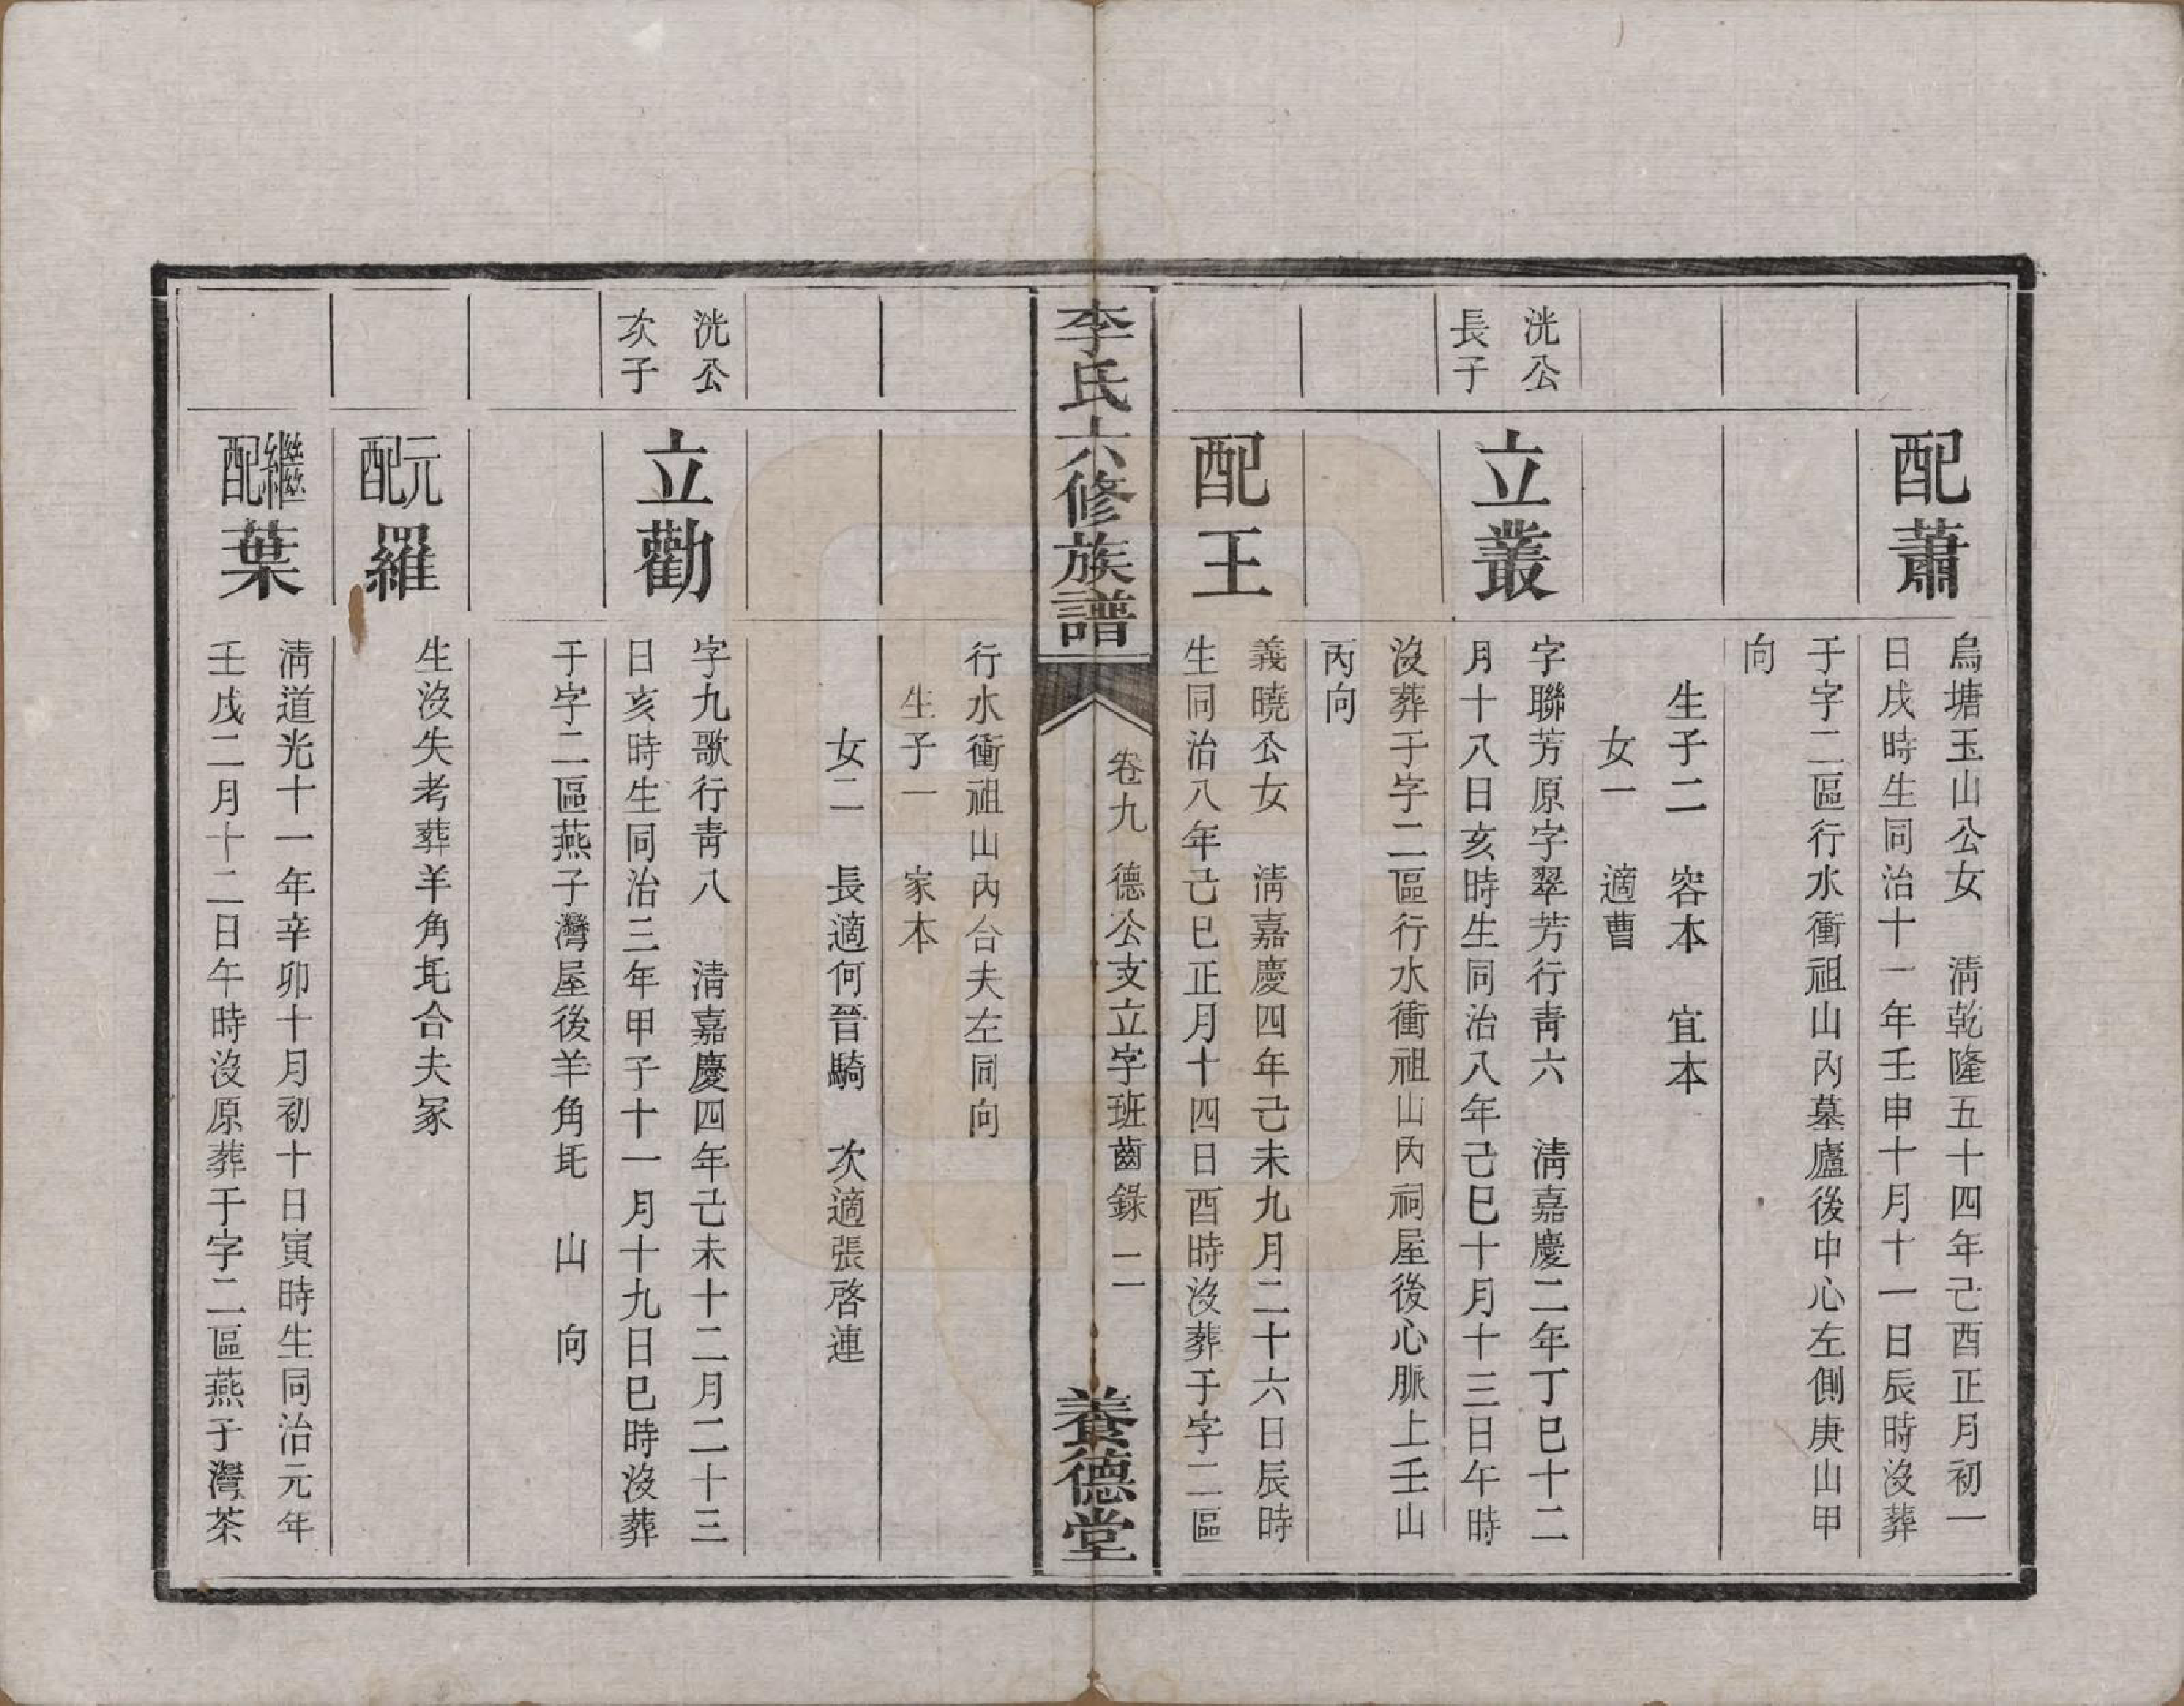 配蕭
烏塘玉山公女　清乾隆五十四年己酉正月初一
日戌時生同治十一年壬申十月十一日辰時沒葬
于字二區行水衝祖山內墓廬後中心左側庚山甲
向
生子二　容本　宜本
女一　適曹
洸公
長子
立叢
字聯芳原字翠芳行青六　清嘉慶二年丁巳十二
月十八日亥時生同治八年己巳十月十三日午時
沒葬于字二區行水衝祖山內祠屋後心脈上壬山
丙向
配王
義曉公女　清嘉慶四年己未九月二十六日辰時
生同治八年己巳正月十四日酉時沒葬于字二區
李氏六修族譜
卷九　德公支立字班齒錄　二
養德堂
行水衝祖山內合夫左同向
生子一　家本
女二　長適何晉騎　次適張啓連
洸公
次子
立勸
字九歌行青八　清嘉慶四年己未十二月二十三
日亥時生同治三年甲子十一月十九日巳時沒葬
于字二區燕子灣屋後羊角坉　山　向
元配羅
生沒失考葬羊角坉合夫冢
繼配葉
清道光十一年辛卯十月初十日寅時生同治元年
壬戌二月十二日午時沒原葬于字二區燕子灣茶